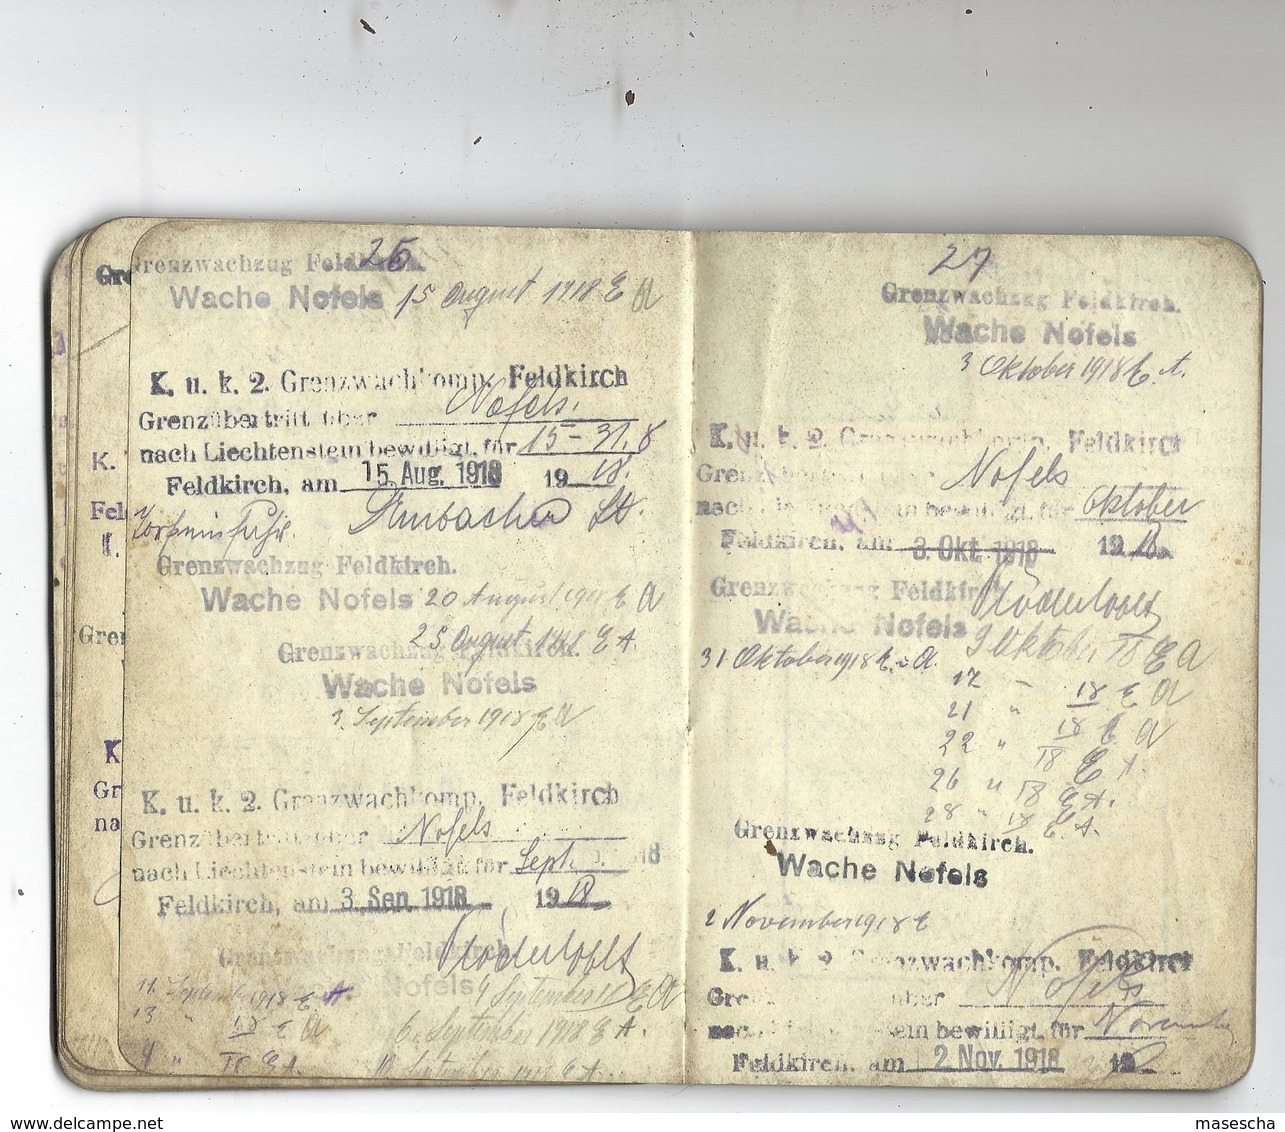 26
Grenzwachzug Feldkirch.
Wache Nofels 15 August 1918 E A
K. u. k. 2. Grenzwachkomp. Feldkirch
Grenzübertritt über Nofels.
nach Liechtenstein bewilligt, für 15-31. 8
Feldkirch, am 15. Aug. 1918 1918.
Lt.
Grenzwachzug Feldkirch.
Wache Nofels 20 August 1918 E A
25 August 1918 E A
Grenzwachzug Feldkirch.
Wache Nofels
3. September 1918 E A
K. u. k. 2. Grenzwachkomp. Feldkirch
Grenzübertritt über Nofels
nach Liechtenstein bewilligt für Sept.
Feldkirch, am 3. Sep. 1918 1918
Grenzwachzug Feldkirch
Wache Nofels 9 September 18 E A
11. September 1918 E A.
13 " 18 E A
6. September 1918 E A.
" 18 E A.
September 1918 E A.
K.
Fel
Gren
K
Gr
na
27
Grenzwachzug Feldkirch.
Wache Nofels
3 Oktober 1918 E. A.
K. u. k. 2. Grenzwachkomp. Feldkirch
Nofels
bewilligt, für Oktober
Feldkirch, am 3. Okt. 1918 1918.
Grenzwachzug Feldkirch
Wache Nofels 9 Oktober 18 E A
31 Oktober 1918 E. A.
17 - 18 E A
21 " 18 E A
22 " 18 E A.
26 " 18 E A.
28 " 18 E. A.
Grenzwachzug Feldkirch.
Wache Nofels
2 November 1918 E
K. u. k. 2. Grenzwachkomp. Feldkirch
über Nofels
bewilligt, für November
Feldkirch, am 2. Nov. 1918 19
www.delcampe.net
masescha